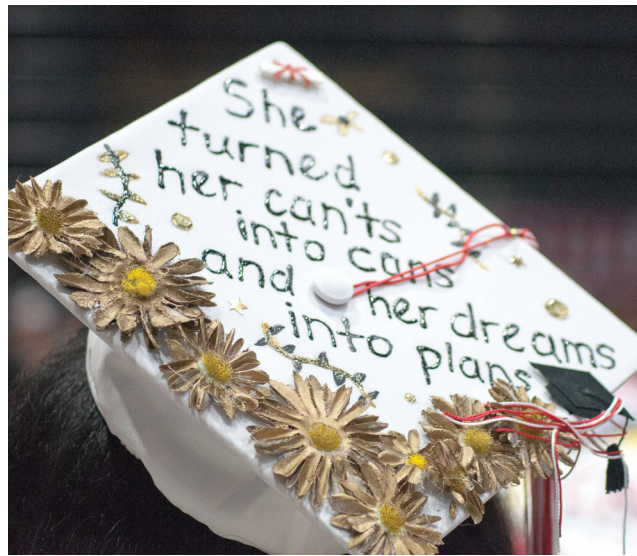 She
turned
her can'ts
into cans
and her dreams
into plans